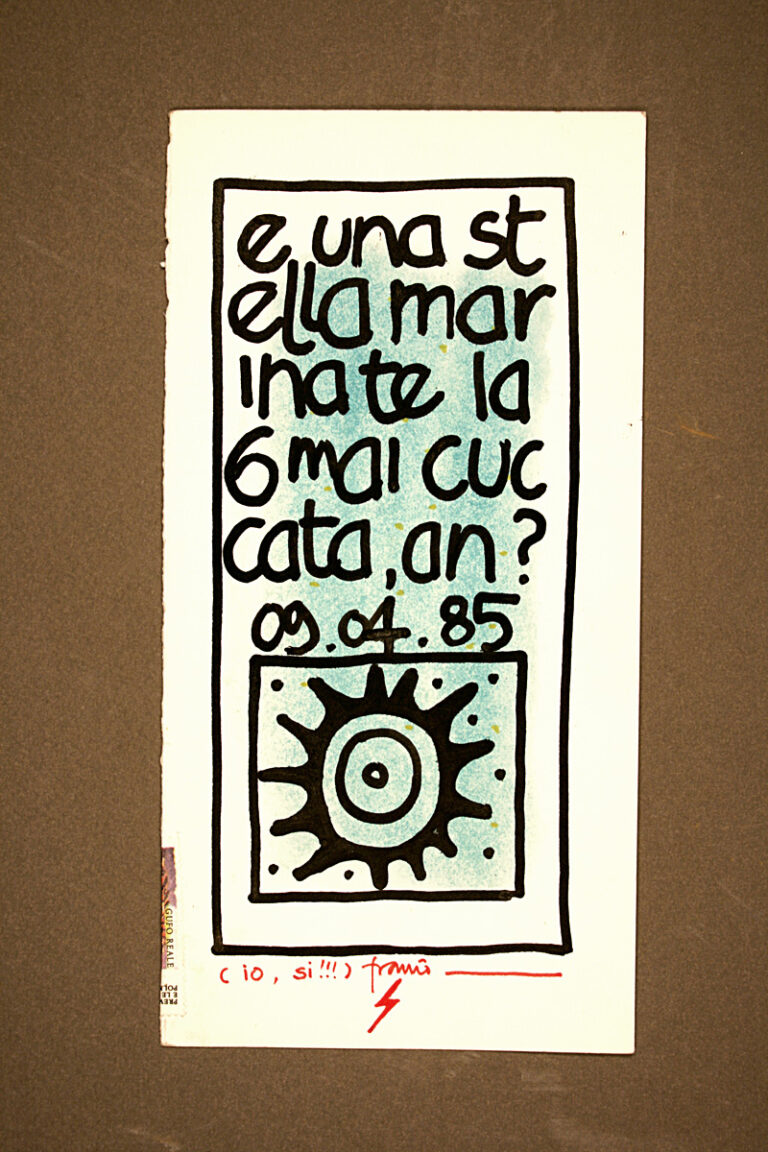 e una st
ella mar
ina te la
6 mai cuc
cata, an?
09.04.85
(io, si!!!)
GUFO REALE